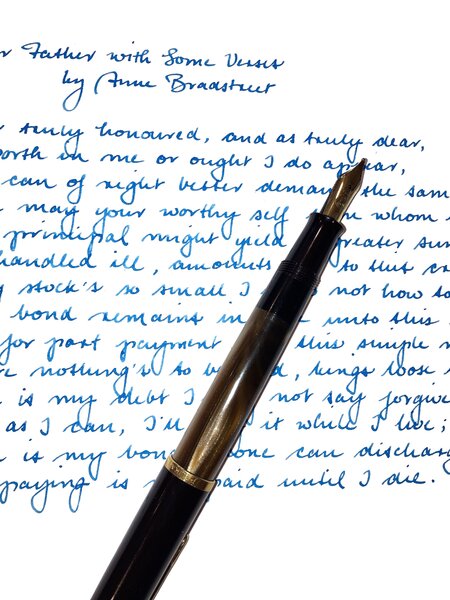 Father with Some Verses
by Anne Bradstreet
truly honoured, and as truly dear,
orth in me or ought I do appear,
can of right better demand the same
may your worthy self whom
principal might yield greater sum
handled ill, amounts to this
stock's so small I not how to
bond remains in unto this
for part payment this simple
nothing's to kings loose
is my debt I not say forgive
as I can, I'll it while I live;
is my bond none can discharge
paying is paid until I die.